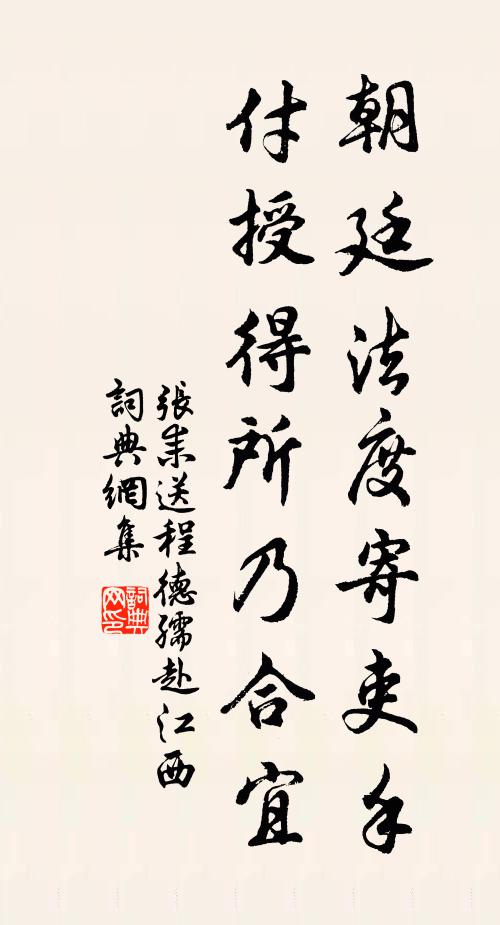 朝廷法度寄吏手
付授得所乃合宜
張耒送程德孺赴江西
詞典網集
詞典
网印